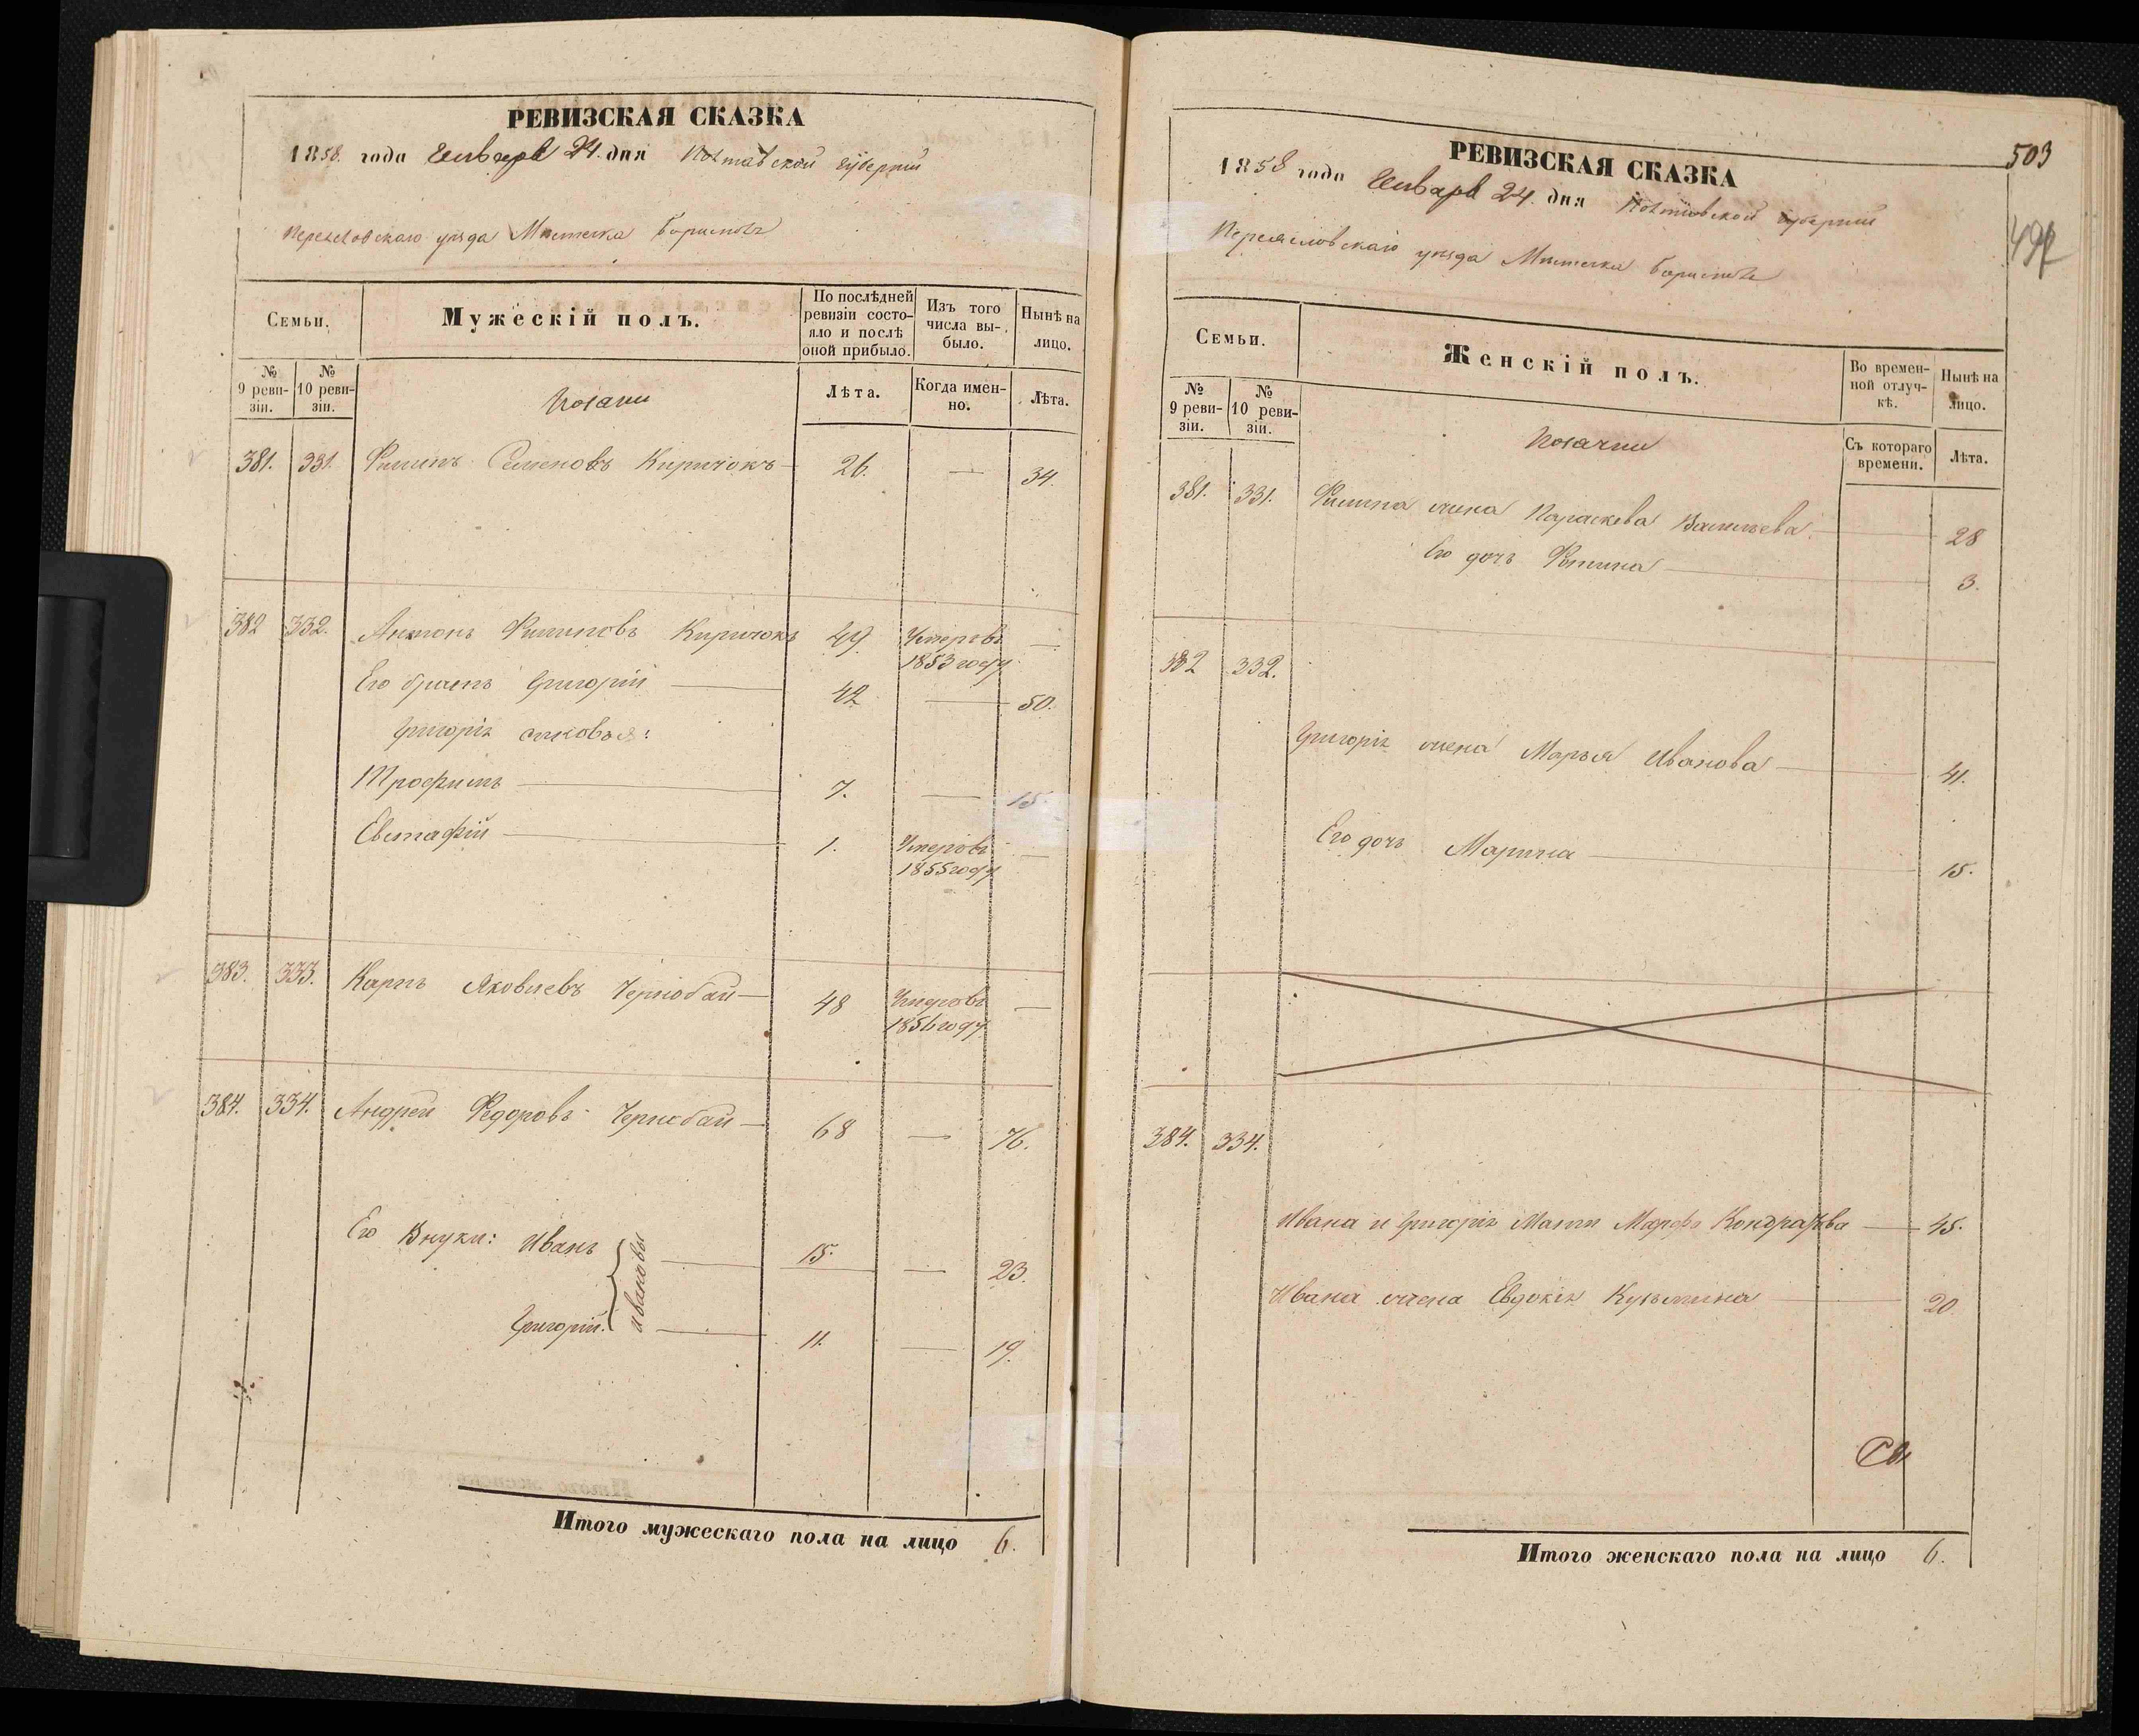 РЕВИЗСКАЯ СКАЗКА
1858. года Генваря 24. дня Полтавской губернии
Переяславскаго уезда Местечка Борисполь
Семьи.
Мужескій полъ.
По послѣдней ревизіи состо-
яло и послѣ
оной прибыло.
Изъ того
числа вы-
было.
Нынѣ на
лицо.
№
9 реви-
зіи.
№
10 реви-
зіи.
Козаки
Лѣта.
Когда имен-
но.
Лѣта.
381. 331. Филипъ Семеновъ Киричокъ 26. — 34.
382 332. Антонъ Филиповъ Киричокъ 49. Умеръ въ —
1853 году
Его братъ Григорій 42 — 50.
Григорія сыновья:
Трофимъ 7. — 15.
Евстафій 1. Умеръ въ —
1855 году
383. 333. Карпъ Яковлевъ Чернобай 48 Умеръ въ —
1856 году
384. 334. Андрей Федоровъ Чернобай 68 — 76.
Его Внуки: Иванъ 15. — 23.
Ивановы
Григорій. 11. — 19.
Итого мужескаго пола на лицо 6.
503
РЕВИЗСКАЯ СКАЗКА
1858 года Генваря 24. дня Полтавской губернии
Переяславскаго уезда Местечка Борисполь
Семьи.
Женскій полъ.
Во времен-
ной отлуч-
кѣ.
Нынѣ на
лицо.
№
9 реви-
зіи.
№
10 реви-
зіи.
Козачки
Съ котораго
времени.
Лѣта.
381. 331. Филипа жена Параскева Васильева. 28
Его дочь Фотина 3.
382 332.
Григорія жена Марья Иванова 41.
Его дочь Марина 15.
384. 334.
Ивана и Григорія Мати Марфа Кондратьева 45.
Ивана жена Евдокія Кузьмина 20
Итого женскаго пола на лицо 6.